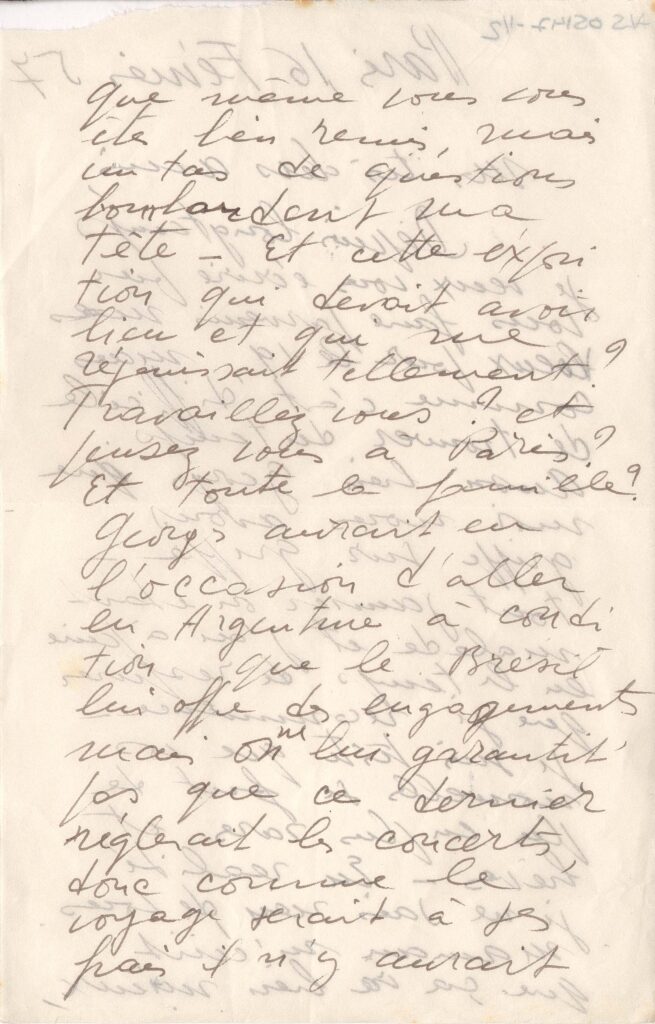 que même vous vous
ête bien remis, mais
un tas de questions
bombardent ma
tête - Et cette exposi
tion qui devait avoir
lieu et qui me
réjouissait tellement?
Travaillez vous? et
pensez vous à Paris?
Et toute la famille?
Georgs aurait eu
l'occasion d'aller
en Argentine à condi
tion que le Brésil
lui offre des engagements
mais on ne lui garantit
pas que ce dernier
réglerait les concerts,
donc comme le
voyage serait à ses
frais il n'y aurait